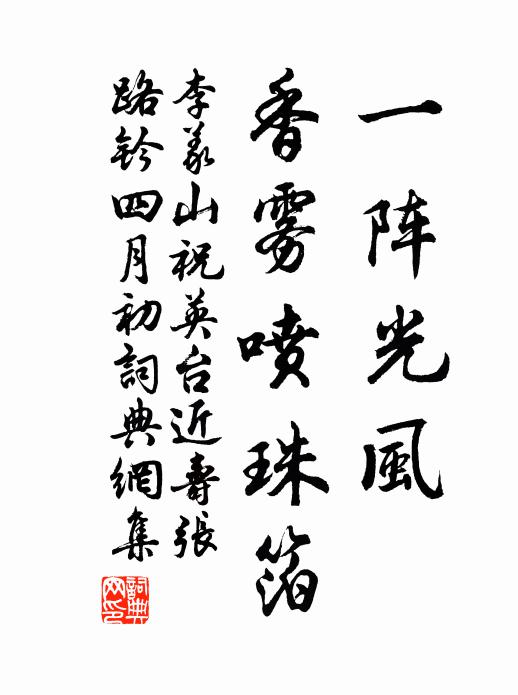 一阵光風
香雾噴珠箔
李义山祝英台近壽張
路鈐四月初詞典網集
詞典
网印